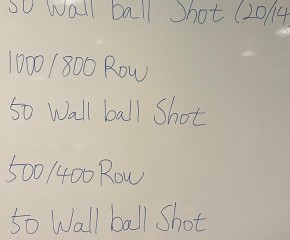 50 Wall ball Shot (20/14
1000/800 Row
50 Wall ball Shot
500/400 Row
50 Wall ball Shot